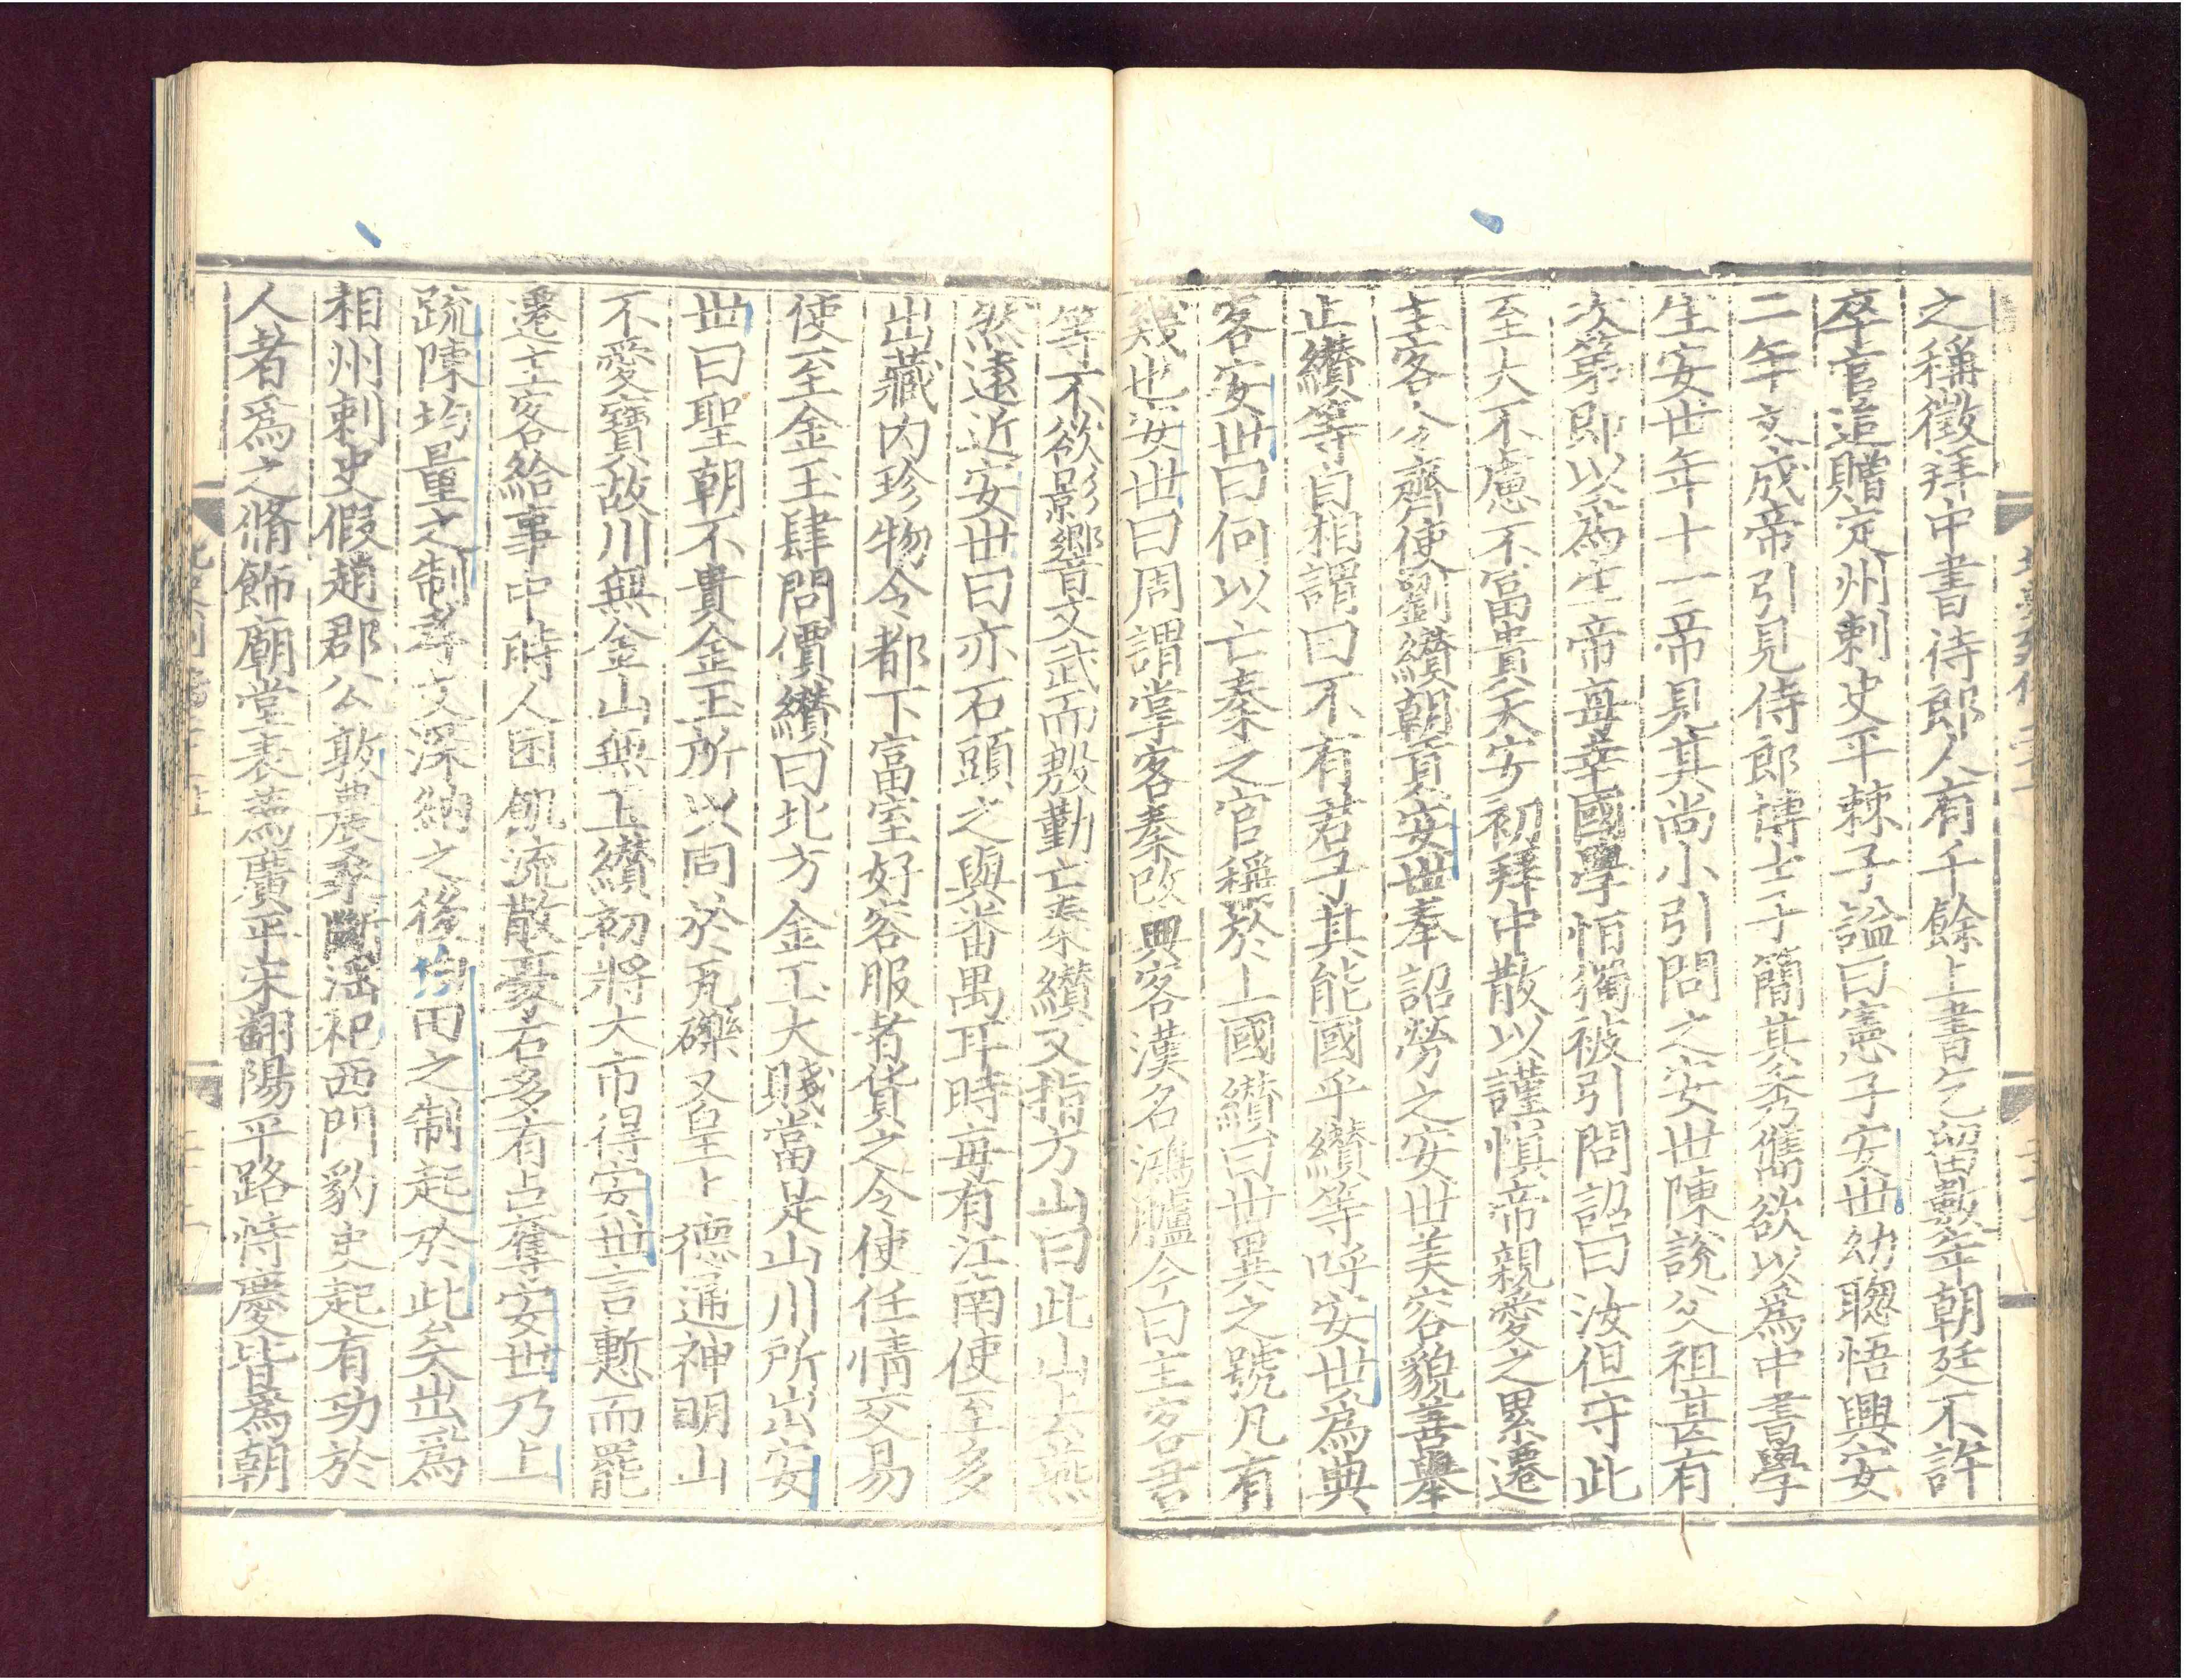 之稱徵拜中書侍郎人有千餘上書乞留數年朝廷不許
卒官追贈定州刺史平棘子謚曰憲子安世幼聰悟興安
二年文成帝引見侍郎博士子簡其秀儁欲以爲中書學
生安世年十一帝見其尚小引問之安世陳說父祖甚有
次第即以爲生帝每幸國學恒獨被引問詔曰汝但守此
至大不慮不富貴天安初拜中散以謹愼帝親愛之累遷
主客令齊使劉纘朝貢安世奉詔勞之安世美容貌善舉
止纘等自相謂曰不有君子其能國乎纘等呼安世爲典
客安世曰何以亡秦之官稱於上國纘曰世異之號凡有
幾也安世曰周謂掌客秦改興客漢名鴻臚今曰主客君
等不欲影響文武而殷勤亡秦纘又指方山曰此山去燕
然遠近安世曰亦石頭之與番禺耳時每有江南使至多
出藏內珍物令都下富室好容服者貨之令使任情交易
使至金玉肆問價纘曰北方金玉大賤當是山川所出安
世曰聖朝不貴金玉所以同於瓦礫又皇上德通神明山
不愛寶故川無金山無玉纘初將大市得安世言慙而罷
遷主客給事中時人困飢流散豪右多有占奪安世乃上
疏陳均量之制孝文深納之後均田之制起於此矣出爲
相州刺史假趙郡公敦農桑斷淫祀西門豹史起有功於
人者爲之脩飾廟堂表薦廣平宋翻陽平路恃慶皆爲朝